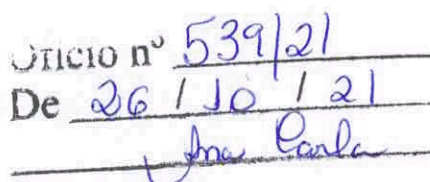 Ofício nº 539/21
De 26 / 10 / 21
Ana Carla